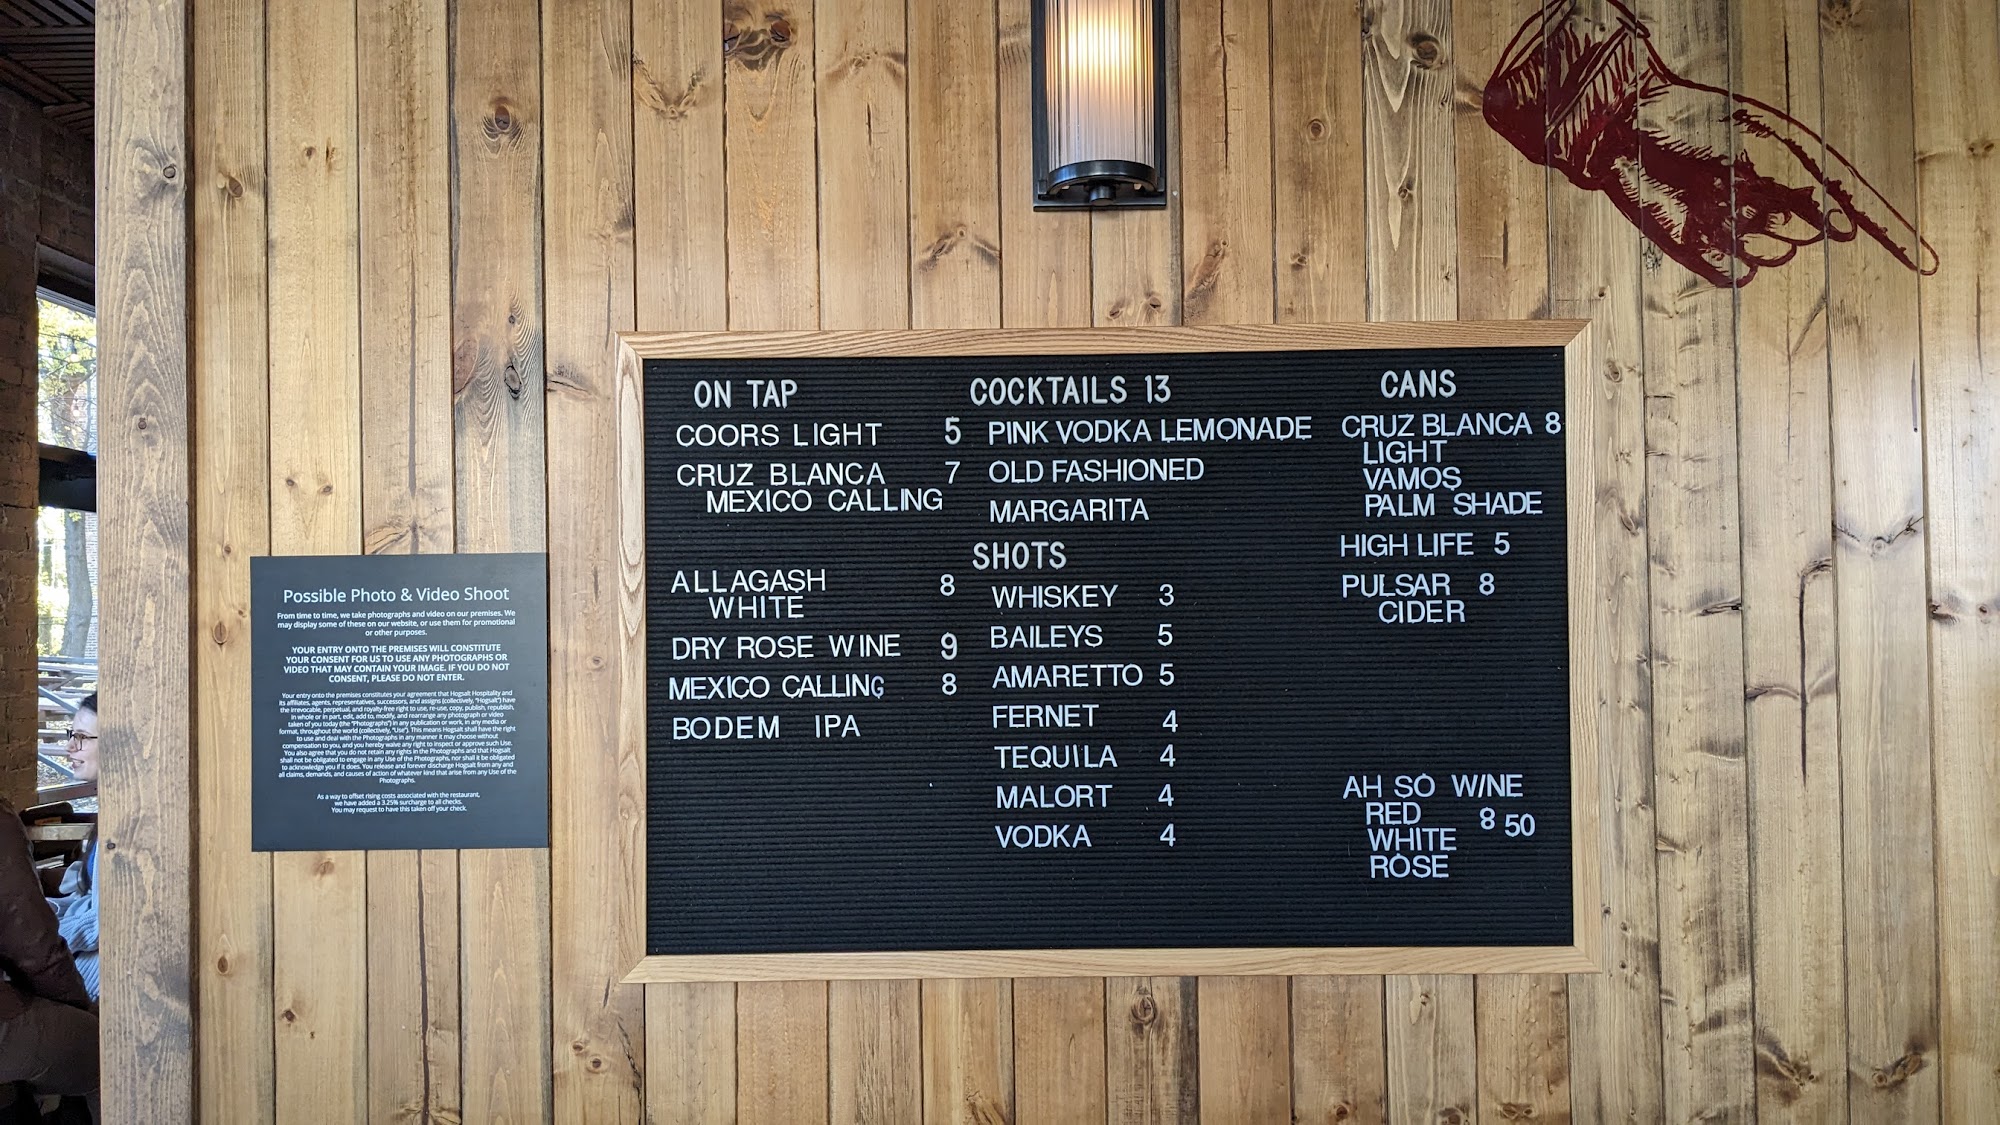 Possible Photo & Video Shoot
From time to time, we take photographs and video on our premises. We
may display some of these on our website, or use them for promotional
or other purposes.
YOUR ENTRY ONTO THE PREMISES WILL CONSTITUTE
YOUR CONSENT FOR US TO USE ANY PHOTOGRAPHS OR
VIDEO THAT MAY CONTAIN YOUR IMAGE. IF YOU DO NOT
CONSENT, PLEASE DO NOT ENTER.
Your entry onto the premises constitutes your agreement that Hogsalt Hospitality and
its affiliates, agents, representatives, successors, and assigns (collectively, "Hogsalt") have
the irrevocable, perpetual, and royalty-free right to use, re-use, copy, publish, republish,
in whole or in part, edit, add to, modify, and rearrange any photograph or video
taken of you today (the "Photographs") in any publication or work, in any media or
format, throughout the world (collectively, "Use"). This means Hogsalt shall have the right
to use and deal with the Photographs in any manner it may choose without
compensation to you, and you hereby waive any right to inspect or approve such Use.
You also agree that you do not retain any rights in the Photographs and that Hogsalt
shall not be obligated to engage in any Use of the Photographs, nor shall it be obligated
to acknowledge you if it does. You release and forever discharge Hogsalt from any and
all claims, demands, and causes of action of whatever kind that arise from any Use of the
Photographs.
As a way to offset rising costs associated with the restaurant,
we have added a 3.25% surcharge to all checks.
You may request to have this taken off your check.
ON TAP
COORS LIGHT 5
CRUZ BLANCA 7
MEXICO CALLING
ALLAGASH 8
WHITE
DRY ROSE WINE 9
MEXICO CALLING 8
BODEM IPA
COCKTAILS 13
PINK VODKA LEMONADE
OLD FASHIONED
MARGARITA
SHOTS
WHISKEY 3
BAILEYS 5
AMARETTO 5
FERNET 4
TEQUILA 4
MALORT 4
VODKA 4
CANS
CRUZ BLANCA 8
LIGHT
VAMOS
PALM SHADE
HIGH LIFE 5
PULSAR 8
CIDER
AH SO WINE
RED 8 50
WHITE
ROSE